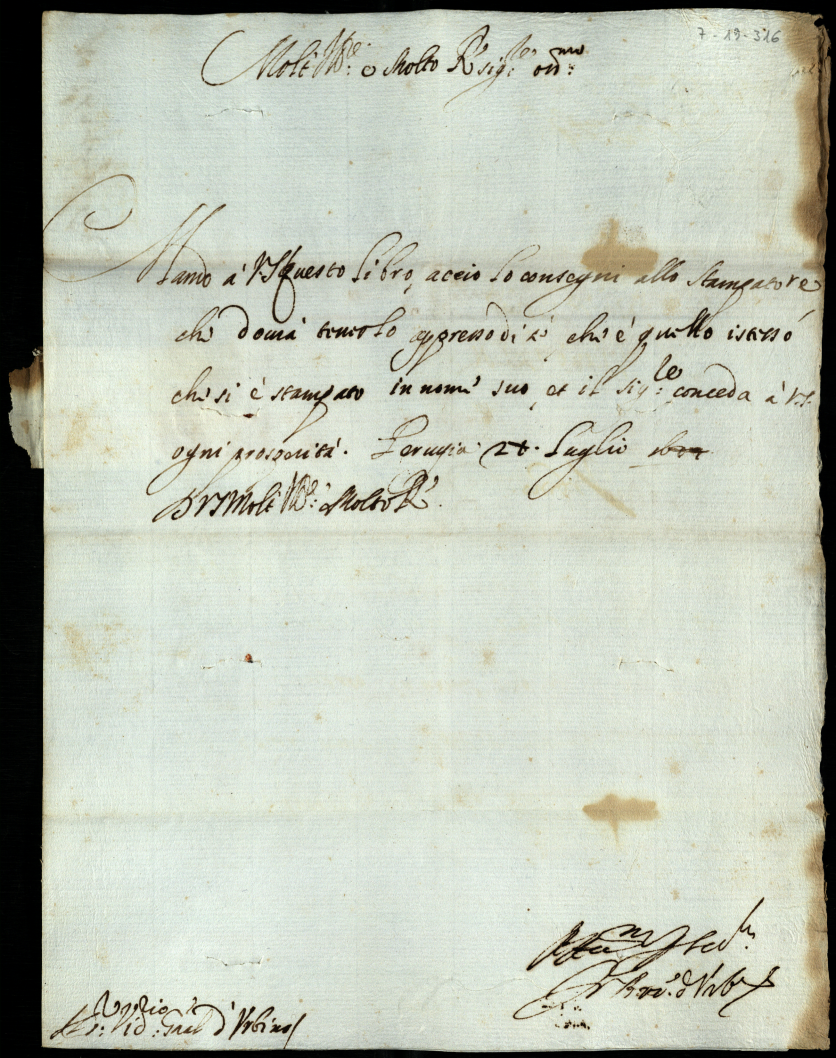 7-19-316
Molt Ill.re e Molto R.do sig.r oss.mo
Mando à VS questo libro, acciò lo consegni allo stampatore
che dovrà tenerlo appresso di se, che è quello istesso
che si è stampato in nome suo, et il sig.re conceda à V.S.
ogni prosperità. Perugia 28. Luglio
D VS Molt Ill.re e Molto R.do
Urbino